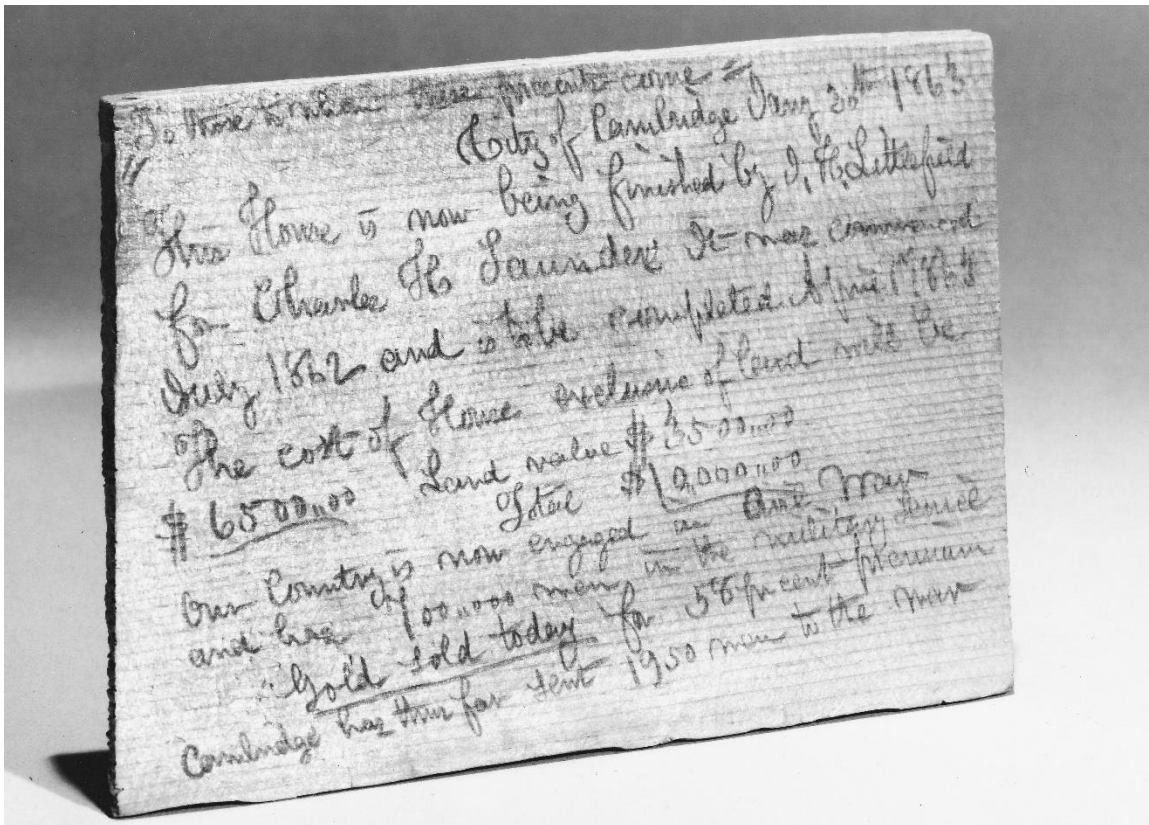 To those to whom these presents come =
City of Cambridge Jany 30th 1863
This House is now being finished by I. H. Littlefield
for Charles H Saunders It was commenced
July 1862 and is to be completed April 1st 1863
The cost of House exclusive of land will be
$ 6500,,00 Land value $ 3500,,00
Total $10,000,,00
Our Country is now engaged in War
and has 700,,000 men in the military service
Gold sold today for 58 pr cent premium
Cambridge has thus far sent 1950 men to the war